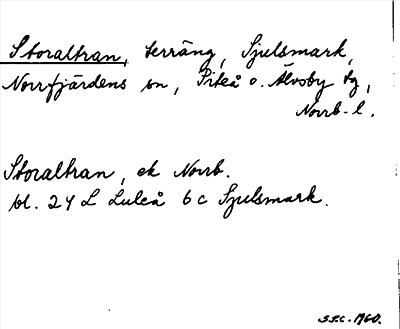 Storaltran, terräng, Sjulsmark,
Norrfjärdens sn, Piteå o. Älvsby tg,
Norrb. l.
Storaltran, ek Norrb.
bl. 24 L Luleå 6 c Sjulsmark.
S.F.C. 1960.